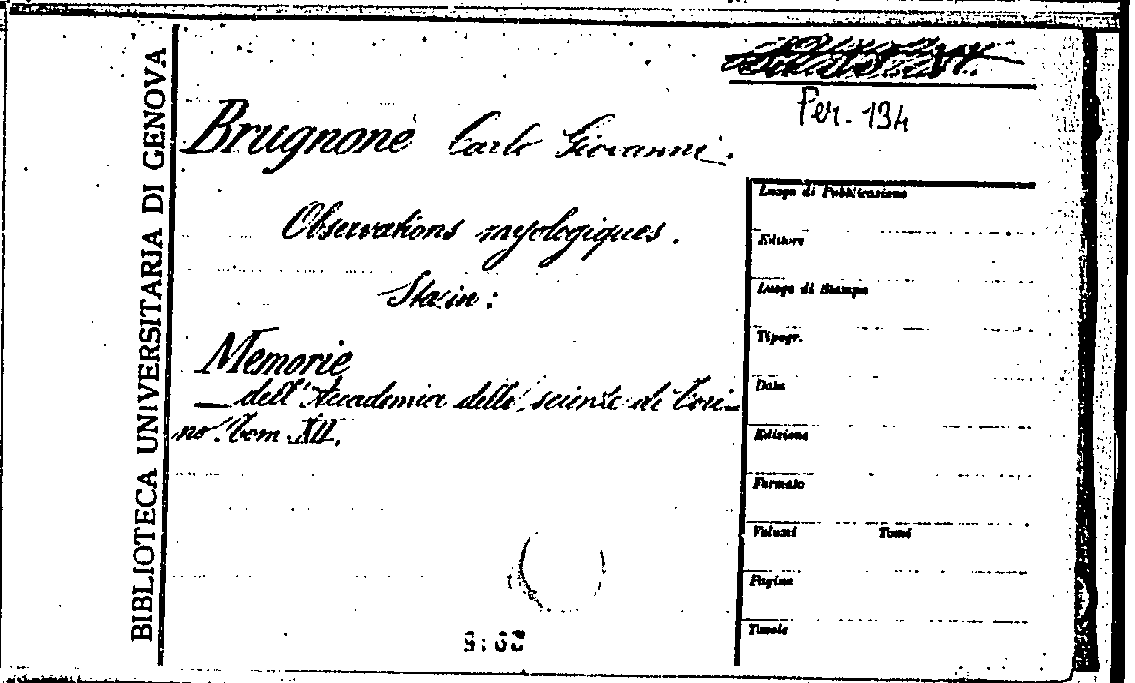 BIBLIOTECA UNIVERSITARIA DI GENOVA
Per. 134
Brugnone Carlo Giovanni.
Observations myologiques.
Sta in:
Memorie
dell'Accademia delle scienze di Tori-
no. Tom XII.
Luogo di Pubblicazione
Editore
Luogo di Stampa
Tipogr.
Data
Edizione
Formato
Volumi Tomi
Pagine
Tavole